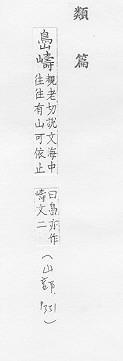 類篇
島嶹
覩老切說文海中
往往有山可依止
曰島亦作
嶹文二
(山部 P331)